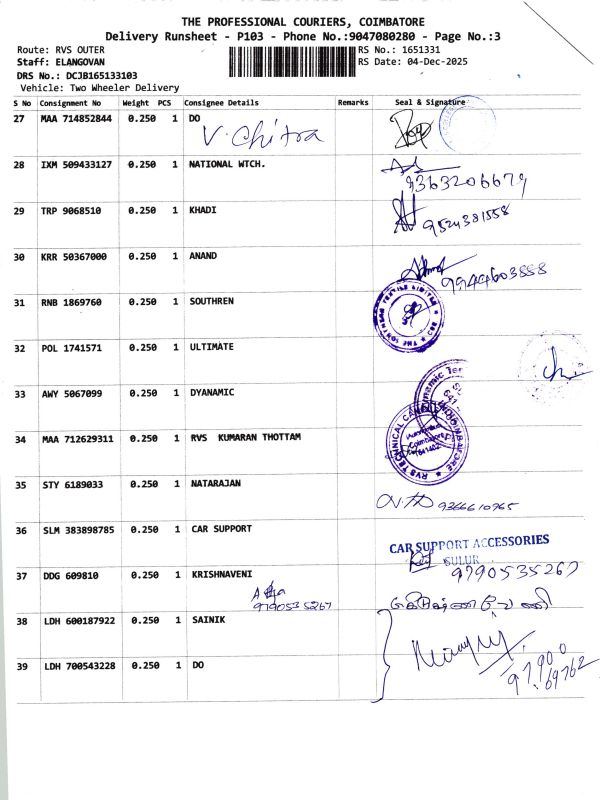 THE PROFESSIONAL COURIERS, COIMBATORE
Delivery Runsheet - P103 - Phone No.:9047080280 - Page No.:3
Route: RVS OUTER RS No.: 1651331
Staff: ELANGOVAN RS Date: 04-Dec-2025
DRS No.: DCJB165133103
Vehicle: Two Wheeler Delivery
S No Consignment No Weight PCS Consignee Details Remarks Seal & Signature
27 MAA 714852844 0.250 1 DO
V. Chitra
28 IXM 509433127 0.250 1 NATIONAL WTCH.
9363206679
29 TRP 9068510 0.250 1 KHADI
9524381558
30 KRR 50367000 0.250 1 ANAND
9944603858
31 RNB 1869760 0.250 1 SOUTHREN
32 POL 1741571 0.250 1 ULTIMATE
33 AWY 5067099 0.250 1 DYANAMIC
34 MAA 712629311 0.250 1 RVS KUMARAN THOTTAM
RVS TECHNICAL CAMPUS
Coimbatore
641402
35 STY 6189033 0.250 1 NATARAJAN
9366610965
36 SLM 383898785 0.250 1 CAR SUPPORT
CAR SUPPORT ACCESSORIES
SULUR
37 DDG 609810 0.250 1 KRISHNAVENI
9790535267
9790535267
38 LDH 600187922 0.250 1 SAINIK
39 LDH 700543228 0.250 1 DO
97900
69762